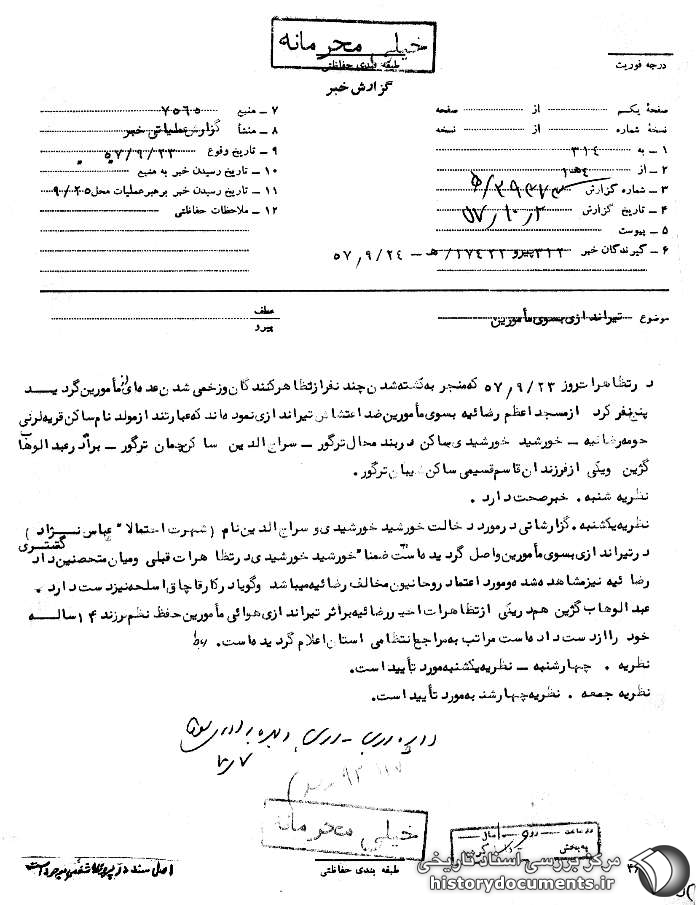 خیلی محرمانه
طبقه بندی حفاظتی
گزارش خبر
درجه فوریت
صفحهٔ یکم از صفحه
نسخهٔ شماره از نسخه
۱ ـ به ۳۱۴
۲ ـ از
۳ ـ شماره گزارش
۴ ـ تاریخ گزارش ۵۷/۱۰/۳
۵ ـ پیوست
۶ ـ گیرندگان خبر ۳۱۲ پیرو ۱۷۴۲۲/هـ ـ ۵۷/۹/۲۴
۷ ـ منبع ۷۵۶۵
۸ ـ منشأ گزارش عملیاتی خبر
۹ ـ تاریخ وقوع ۵۷/۹/۲۳
۱۰ ـ تاریخ رسیدن خبر به منبع
۱۱ ـ تاریخ رسیدن خبر برهبر عملیات محل ۹/۲۵
۱۲ ـ ملاحظات حفاظتی
موضوع تیراندازی بسوی مأمورین
عطف
پیرو
در تظاهرات روز ۵۷/۹/۲۳ که منجر به کشته شدن چند نفر از تظاهر کنندگان و زخمی شدن عده ای از مأمورین گردید
پنج نفر کرد از مسجد اعظم رضائیه بسوی مأمورین ضد اغتشاش تیراندازی نموده اند که عبارتند از مولد نام ساکن قریه لرنی
حومه رضائیه ـ خورشید خورشیدی ساکن دربند محال ترگور ـ سراج الدین ساکن چمان ترگور ـ برادر عبدالوهاب
گژین ویکی از فرزندان قاسم قسیمی ساکن شیبان ترگور .
نظریه شنبه . خبر صحت دارد .
نظریه یکشنبه . گزارشاتی در مورد دخالت خورشید خورشیدی و سراج الدین نام ( شهرت احتمالا" عباس نژاد )
در تیراندازی بسوی مأمورین واصل گردیده است ضمنا" خورشید خورشیدی در تظاهرات قبلی ومیان متحصنین دادگستری
رضائیه نیز مشاهده شده و مورد اعتماد روحانیون مخالف رضائیه میباشد وگویا در کار قاچاق اسلحه نیز دست دارد .
عبدالوهاب گژین هم در یکی از تظاهرات اخیر رضائیه براثر تیراندازی هوائی مأمورین حفظ نظم فرزند ۱۴ ساله
خود را از دست داده است مراتب به مراجع انتظامی استان اعلام گردیده است .
نظریه . چهارشنبه ـ نظریه یکشنبه مورد تأیید است .
نظریه جمعه . نظریه چهارشنبه مورد تأیید است .
خیلی محرمانه
طبقه بندی حفاظتی
اصل سند در پرونده
مرکز بررسی اسناد تاریخی
historydocuments.ir